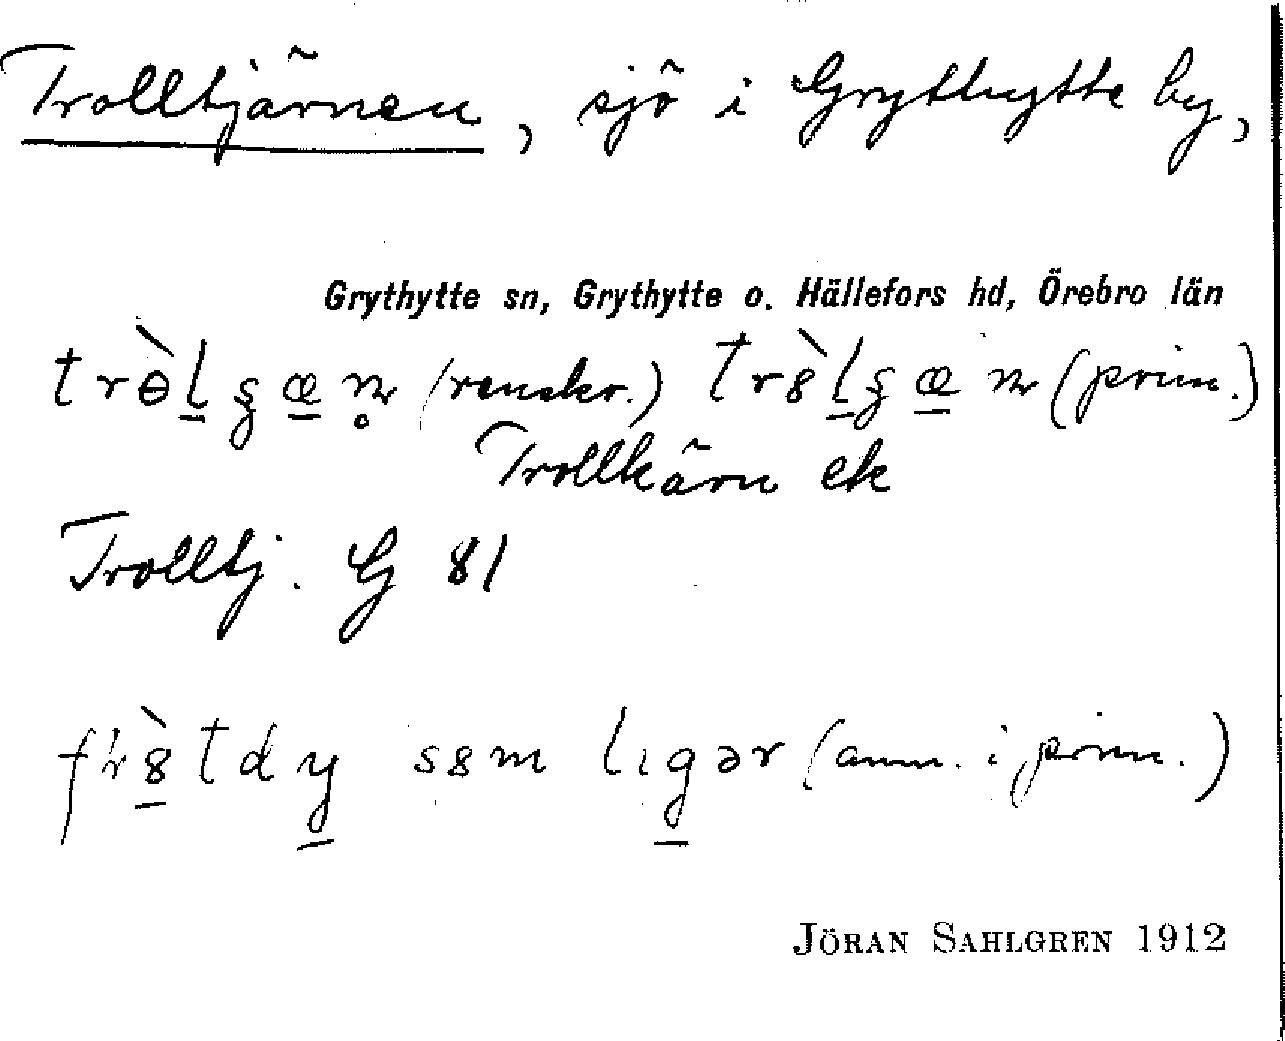 Trolltjärnen, sjö i Grythytte by,
Grythytte sn, Grythytte o. Hällefors hd, Örebro län
(renskr.) (prim.)
Trollkärn ek
Trolltj. G 81
(anm. i prim.)
JÖRAN SAHLGREN 1912